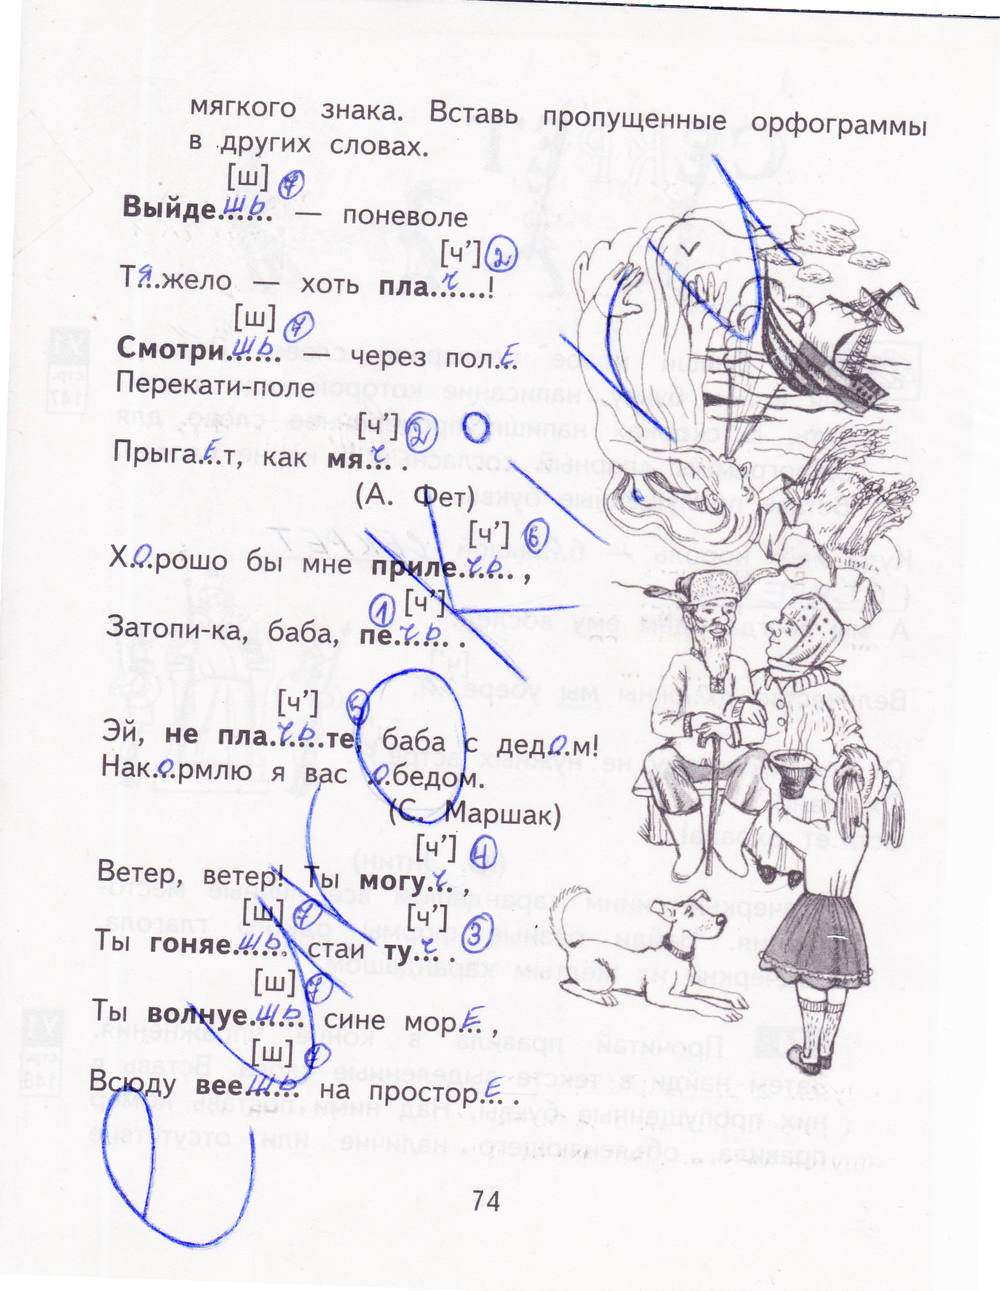 мягкого знака. Вставь пропущенные орфограммы
в других словах.
[ш] 7
Выйдешь — поневоле
[ч’] 2
Тяжело — хоть плач!
[ш] 7
Смотришь через поле
Перекати-поле
[ч’] 2
Прыгает, как мяч.
(А. Фет)
[ч’] 6
Хорошо бы мне прилечь,
1 [ч’]
Затопи-ка, баба, печь.
[ч’] 5
Эй, не плачьте, баба с дедом!
Накормлю я вас обедом.
(С. Маршак)
[ч’] 4
Ветер, ветер! Ты могуч,
[ш] 7 [ч’] 3
Ты гоняешь стаи туч.
[ш] 7
Ты волнуешь сине море,
[ш] 7
Всюду веешь на просторе.
74